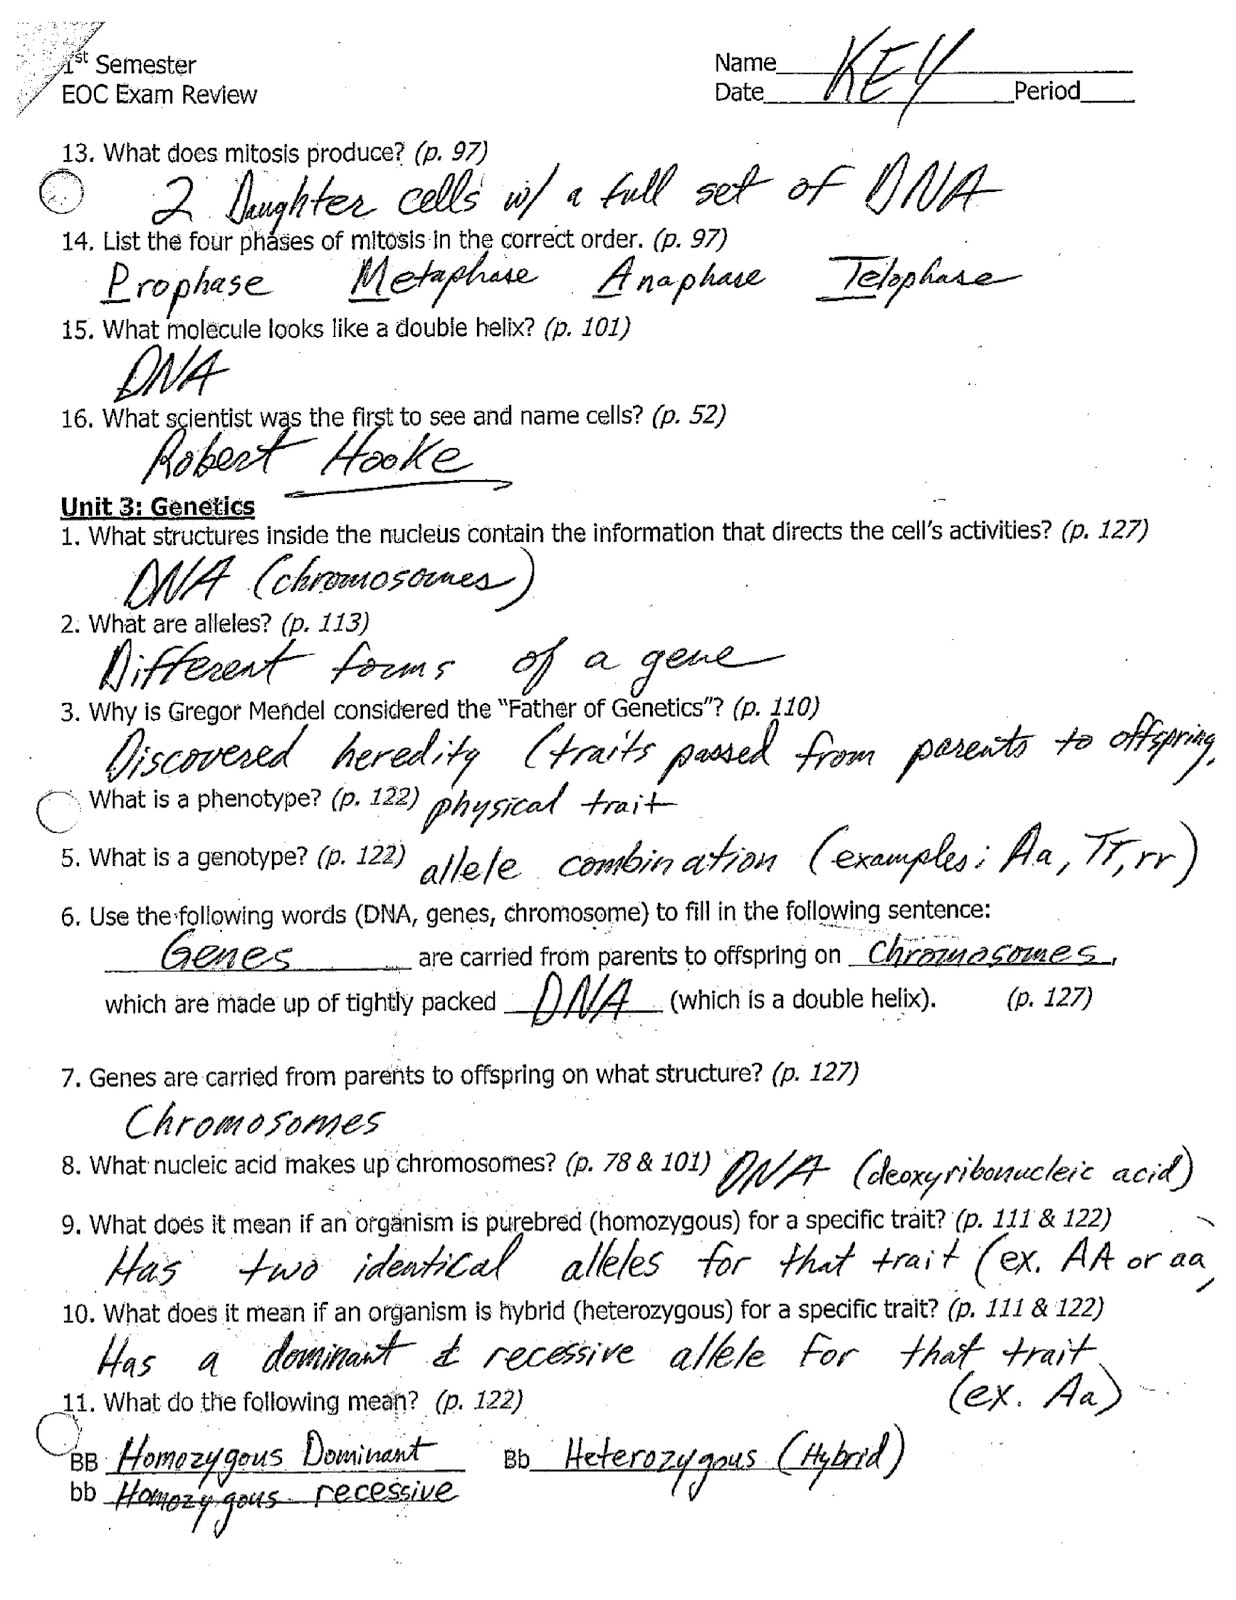 1st Semester
EOC Exam Review
Name KEY
Date Period
13. What does mitosis produce? (p. 97)
2 Daughter cells w/ a full set of DNA
14. List the four phases of mitosis in the correct order. (p. 97)
Prophase Metaphase Anaphase Telophase
15. What molecule looks like a double helix? (p. 101)
DNA
16. What scientist was the first to see and name cells? (p. 52)
Robert Hooke
Unit 3: Genetics
1. What structures inside the nucleus contain the information that directs the cell's activities? (p. 127)
DNA (chromosomes)
2. What are alleles? (p. 113)
Different forms of a gene
3. Why is Gregor Mendel considered the "Father of Genetics"? (p. 110)
Discovered heredity (traits passed from parents to offspring,
What is a phenotype? (p. 122) physical trait
5. What is a genotype? (p. 122) allele combination (examples: Aa, TT, rr)
6. Use the following words (DNA, genes, chromosome) to fill in the following sentence:
Genes are carried from parents to offspring on Chromosomes,
which are made up of tightly packed DNA (which is a double helix). (p. 127)
7. Genes are carried from parents to offspring on what structure? (p. 127)
Chromosomes
8. What nucleic acid makes up chromosomes? (p. 78 & 101) DNA (deoxyribonucleic acid)
9. What does it mean if an organism is purebred (homozygous) for a specific trait? (p. 111 & 122)
Has two identical alleles for that trait (ex. AA or aa)
10. What does it mean if an organism is hybrid (heterozygous) for a specific trait? (p. 111 & 122)
Has a dominant & recessive allele for that trait
(ex. Aa)
11. What do the following mean? (p. 122)
BB Homozygous Dominant Bb Heterozygous (Hybrid)
bb Homozygous recessive